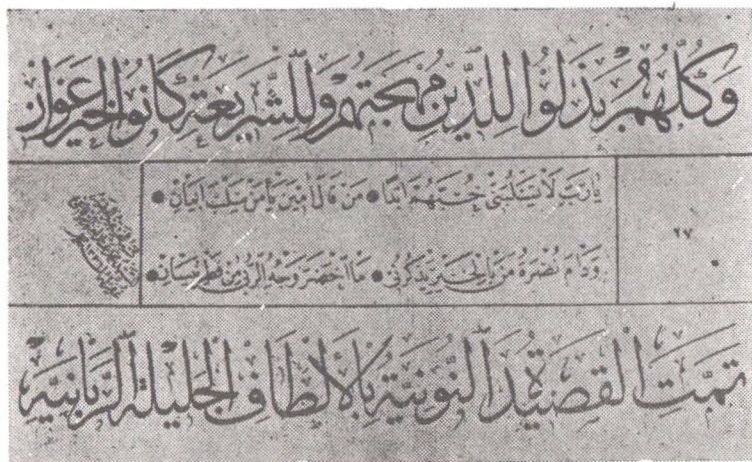 وَكُلُّهُمْ بَذَلُوا لِلدِّينِ مُهْجَتَهُمْ وَلِلشَّرِيعَةِ كَانُوا خَيْرَ اَعْوَانِ
يَارَبِّ لَا تَسْلُبَنِّى حُبَّهُمْ اَبَدًا • مَنْ قَالَ اٰمِينَ يَأْمَنْ سَلْبَ اِيمَانِ •
٢٧
وَدَامَ نُضْرَةُ مَنْ بِالْخَيْرِ يَذْكُرُنِى • مَا اخْضَرَّ وَجْهُ الرُّبٰى مِنْ قَطْرِ نَيْسَانِ •
تَمَّتِ الْقَصِيدَةُ النُّونِيَّةُ بِالْاَلْطَافِ الْجَلِيلَةِ الرَّبَّانِيَّةِ